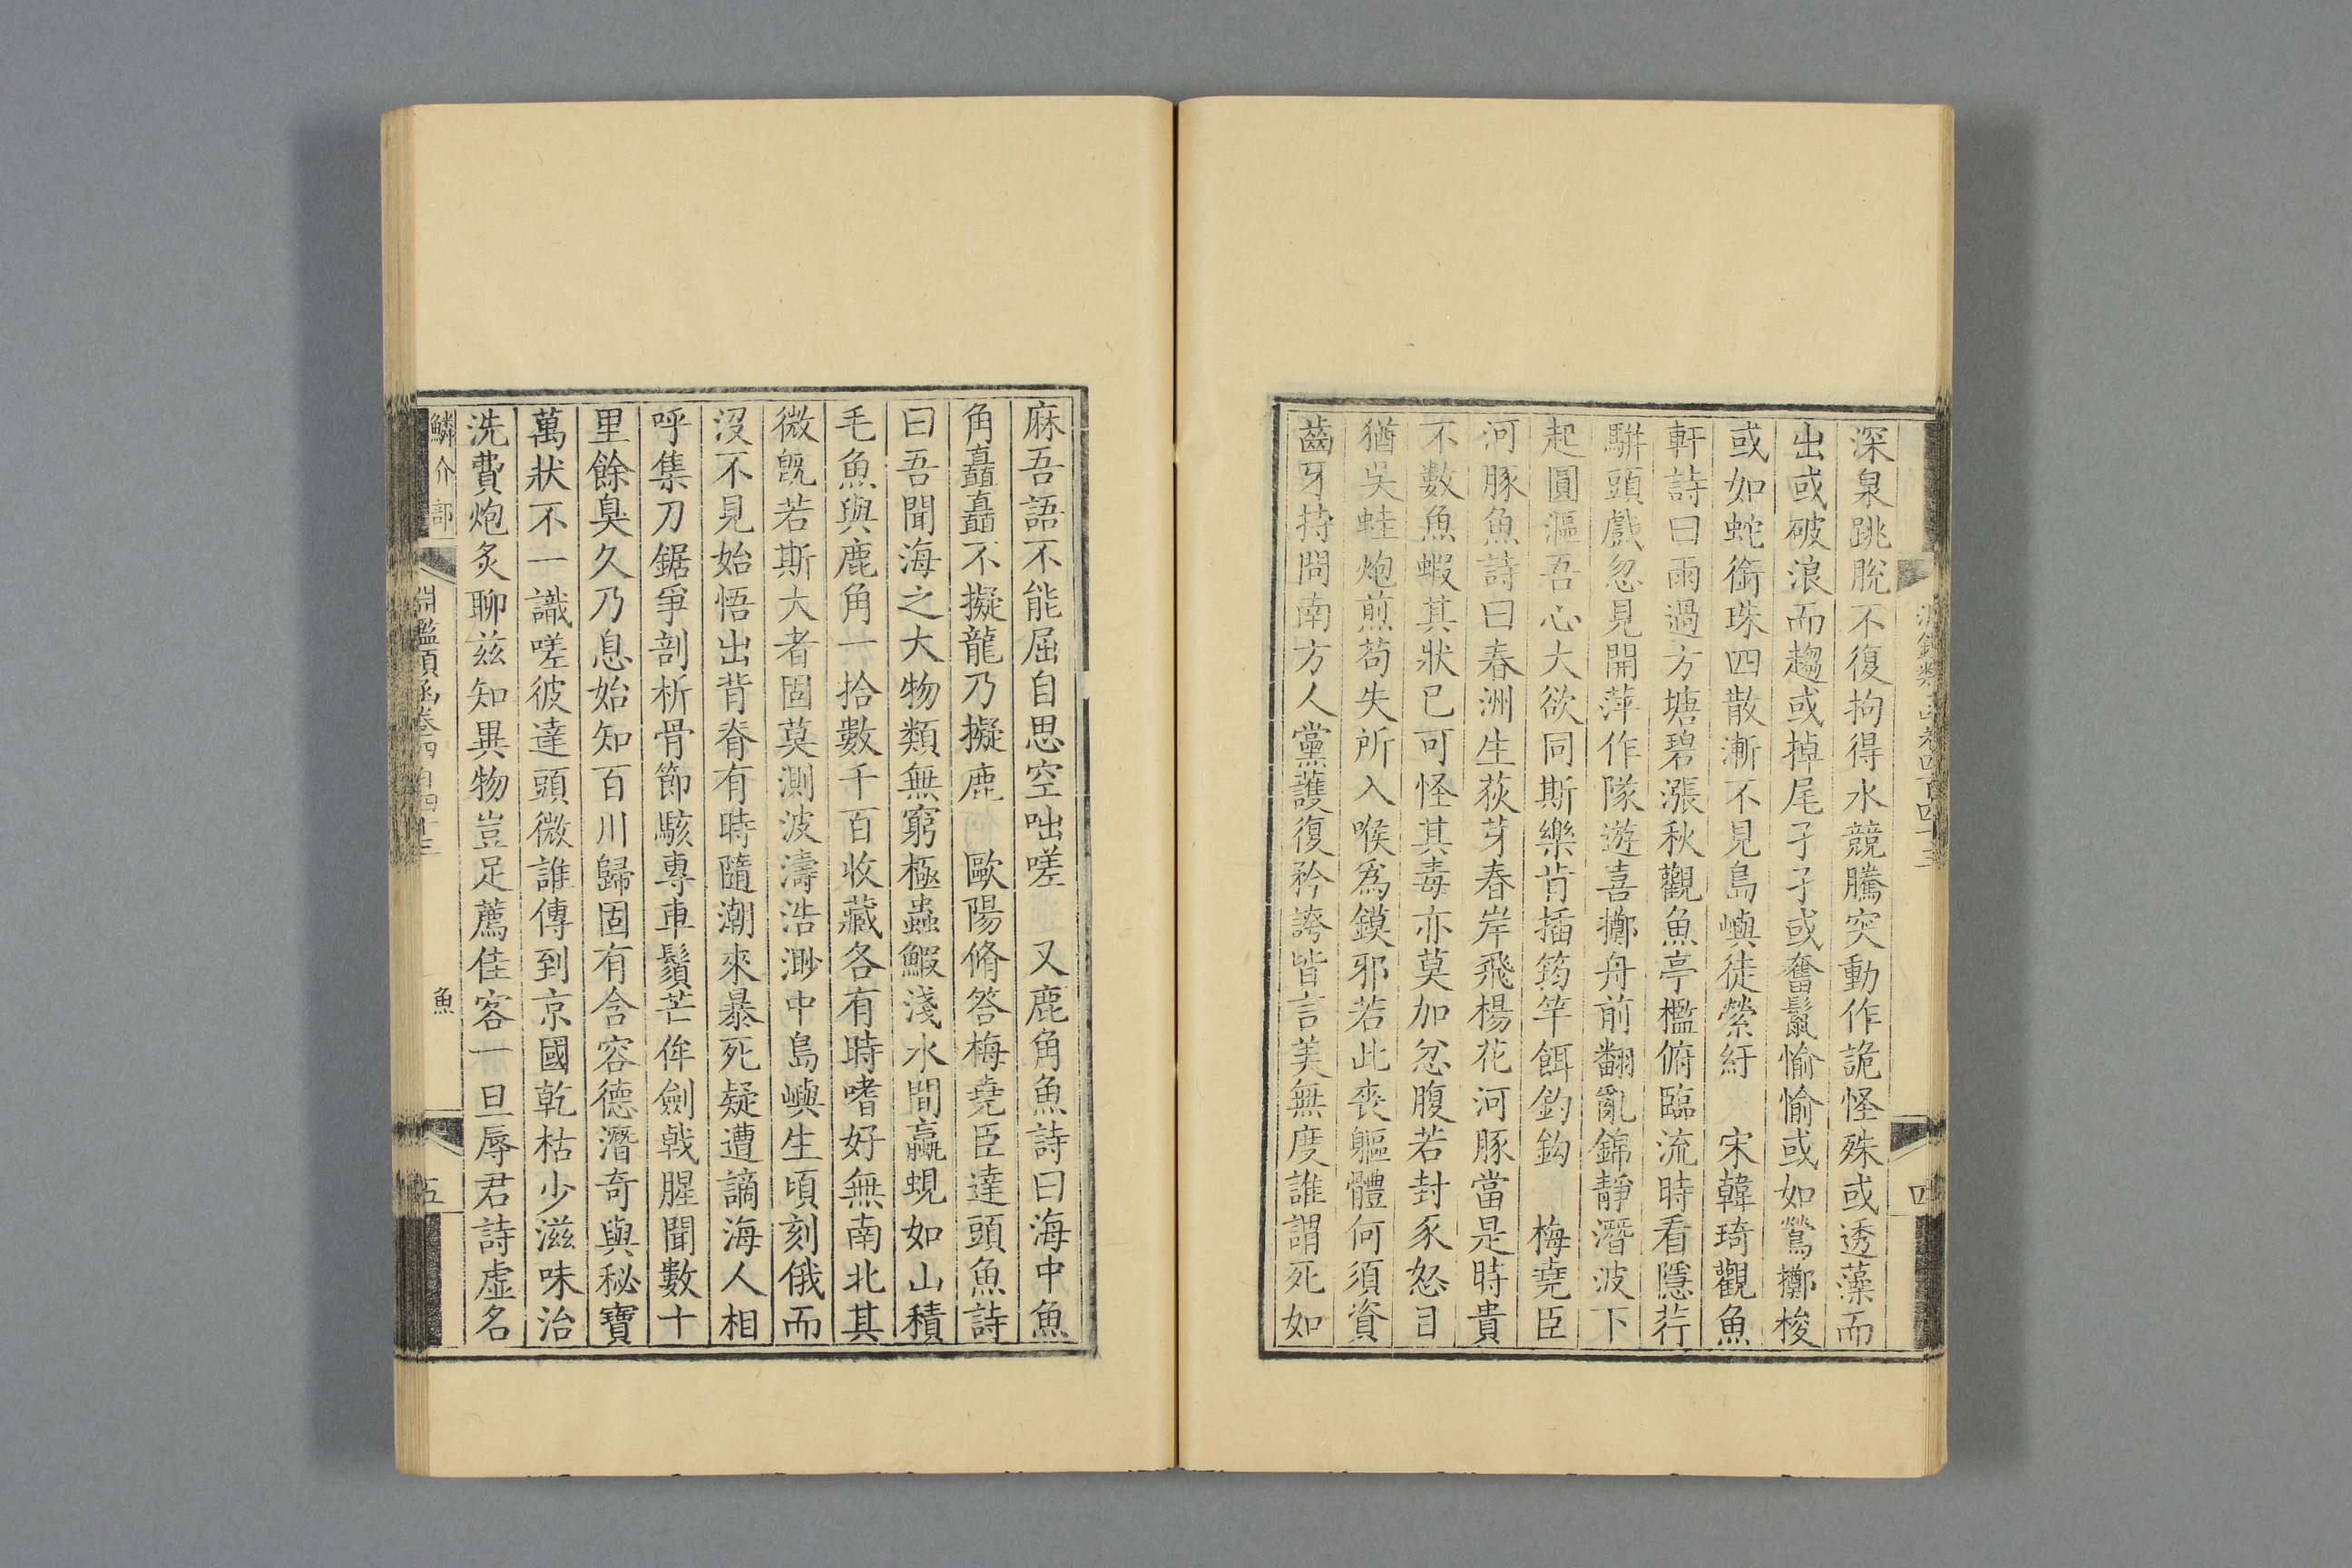 深泉跳脫不復拘得水競騰突動作詭怪殊或透藻而
出或破浪而趨或掉尾孑孑或奮鬣愉愉或如鶯擲梭
或如蛇銜珠四散漸不見島嶼徒縈紆　宋韓琦觀魚
軒詩曰雨過方塘碧漲秋觀魚亭檻俯臨流時看隱荇
駢頭戲忽見開萍作隊遊喜擲舟前翻亂錦靜潛波下
起圓漚吾心大欲同斯樂肯插筠竿餌釣鈎　梅堯臣
河豚魚詩曰春洲生荻芽春岸飛楊花河豚當是時貴
不數魚蝦其狀已可怪其毒亦莫加忿腹若封豕怒目
猶吳蛙炮煎苟失所入喉為鏌邪若此喪軀體何須資
齒牙持問南方人黨護復矜誇皆言美無度誰謂死如
四
麻吾語不能屈自思空咄嗟　又鹿角魚詩曰海中魚
角矗矗不擬龍乃擬鹿　歐陽脩答梅堯臣達頭魚詩
曰吾聞海之大物類無窮極蟲鰕淺水間蠃蜆如山積
毛魚與鹿角一拾數千百收藏各有時嗜好無南北其
微旣若斯大者固莫測波濤浩渺中島嶼生頃刻俄而
沒不見始悟出背脊有時隨潮來暴死疑遭謫海人相
呼集刀鋸爭剖析骨節駭專車鬚芒侔劍戟腥聞數十
里餘臭久乃息始知百川歸固有含容德潛奇與秘寶
萬狀不一識嗟彼達頭微誰傳到京國乾枯少滋味治
洗費炮炙聊茲知異物豈足薦佳客一旦辱君詩虛名
鱗介部
淵鑑類函卷四百四十三
魚
五